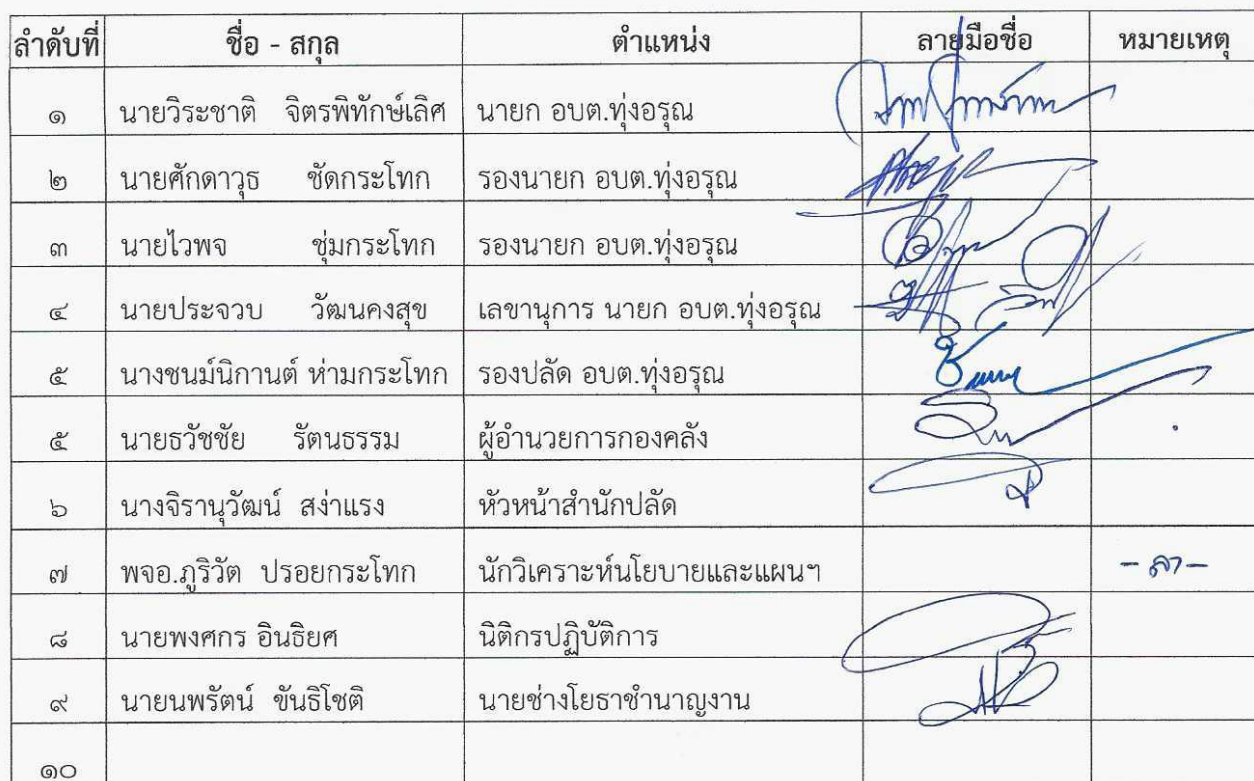 ลำดับที่ ชื่อ - สกุล ตำแหน่ง ลายมือชื่อ หมายเหตุ
๑ นายวิระชาติ จิตรพิทักษ์เลิศ นายก อบต.ทุ่งอรุณ
๒ นายศักดาวุธ ชัดกระโทก รองนายก อบต.ทุ่งอรุณ
๓ นายไวพจ ชุ่มกระโทก รองนายก อบต.ทุ่งอรุณ
๔ นายประจวบ วัฒนคงสุข เลขานุการ นายก อบต.ทุ่งอรุณ
๕ นางชนม์นิกานต์ ห่ามกระโทก รองปลัด อบต.ทุ่งอรุณ
๕ นายธวัชชัย รัตนธรรม ผู้อำนวยการกองคลัง
๖ นางจิรานุวัฒน์ สง่าแรง หัวหน้าสำนักปลัด
๗ พจอ.ภูริวัต ปรอยกระโทก นักวิเคราะห์นโยบายและแผนฯ - ลา -
๘ นายพงศกร อินธิยศ นิติกรปฏิบัติการ
๙ นายนพรัตน์ ขันธิโชติ นายช่างโยธาชำนาญงาน
๑๐